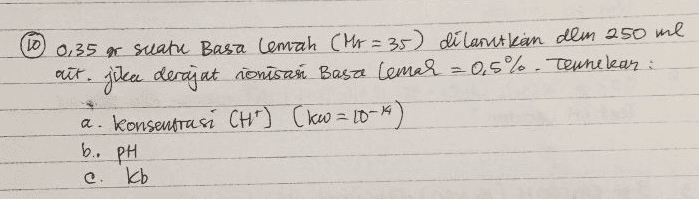 10 0,35 gr suatu Basa Lemah (Mr = 35) dilarutkan dlm 250 ml
air. jika derajat ionisasi Basa Lemah = 0,5%. Tentukan :
a. konsentrasi (H⁺) (kw = 10⁻¹⁴)
b. pH
c. kb